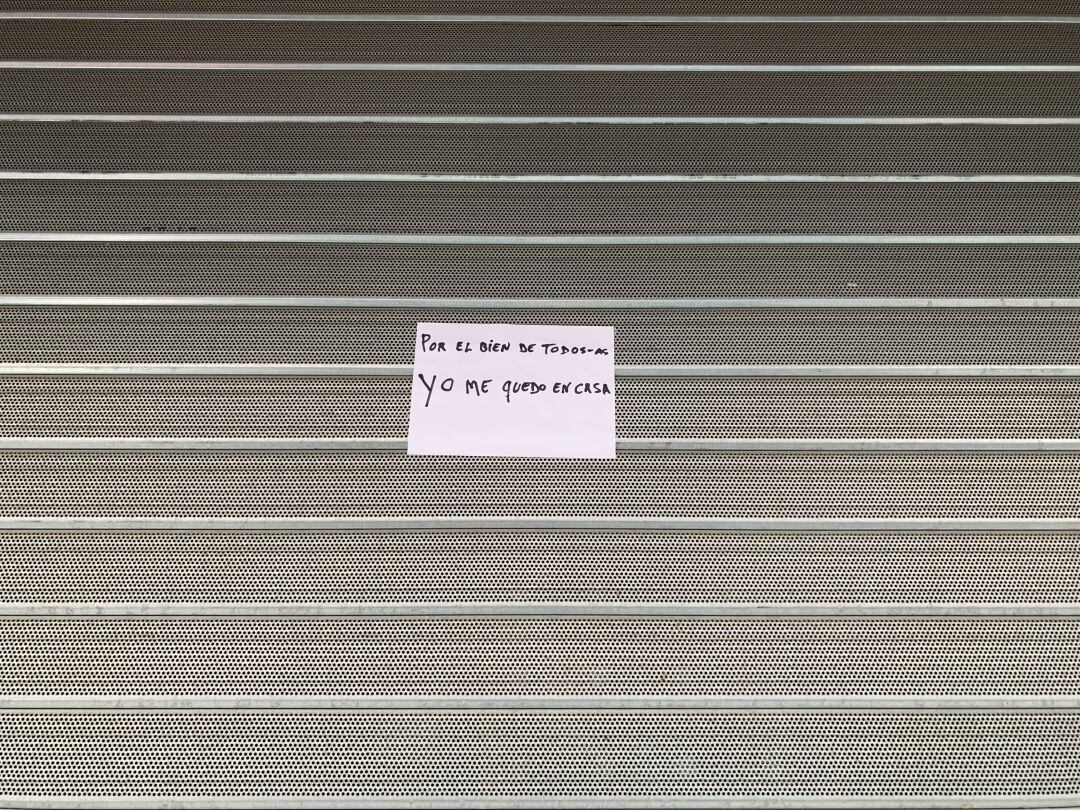 POR EL BIEN DE TODOS-AS
YO ME QUEDO EN CASA